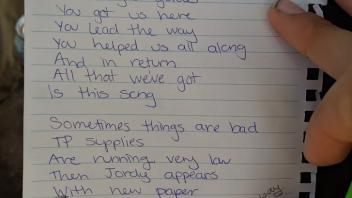 You got us here
You lead the way
You helped us all along
And in return
All that we've got
Is this song
Sometimes things are bad
TP supplies
Are running very low
Then Jordy appears
With new paper
way